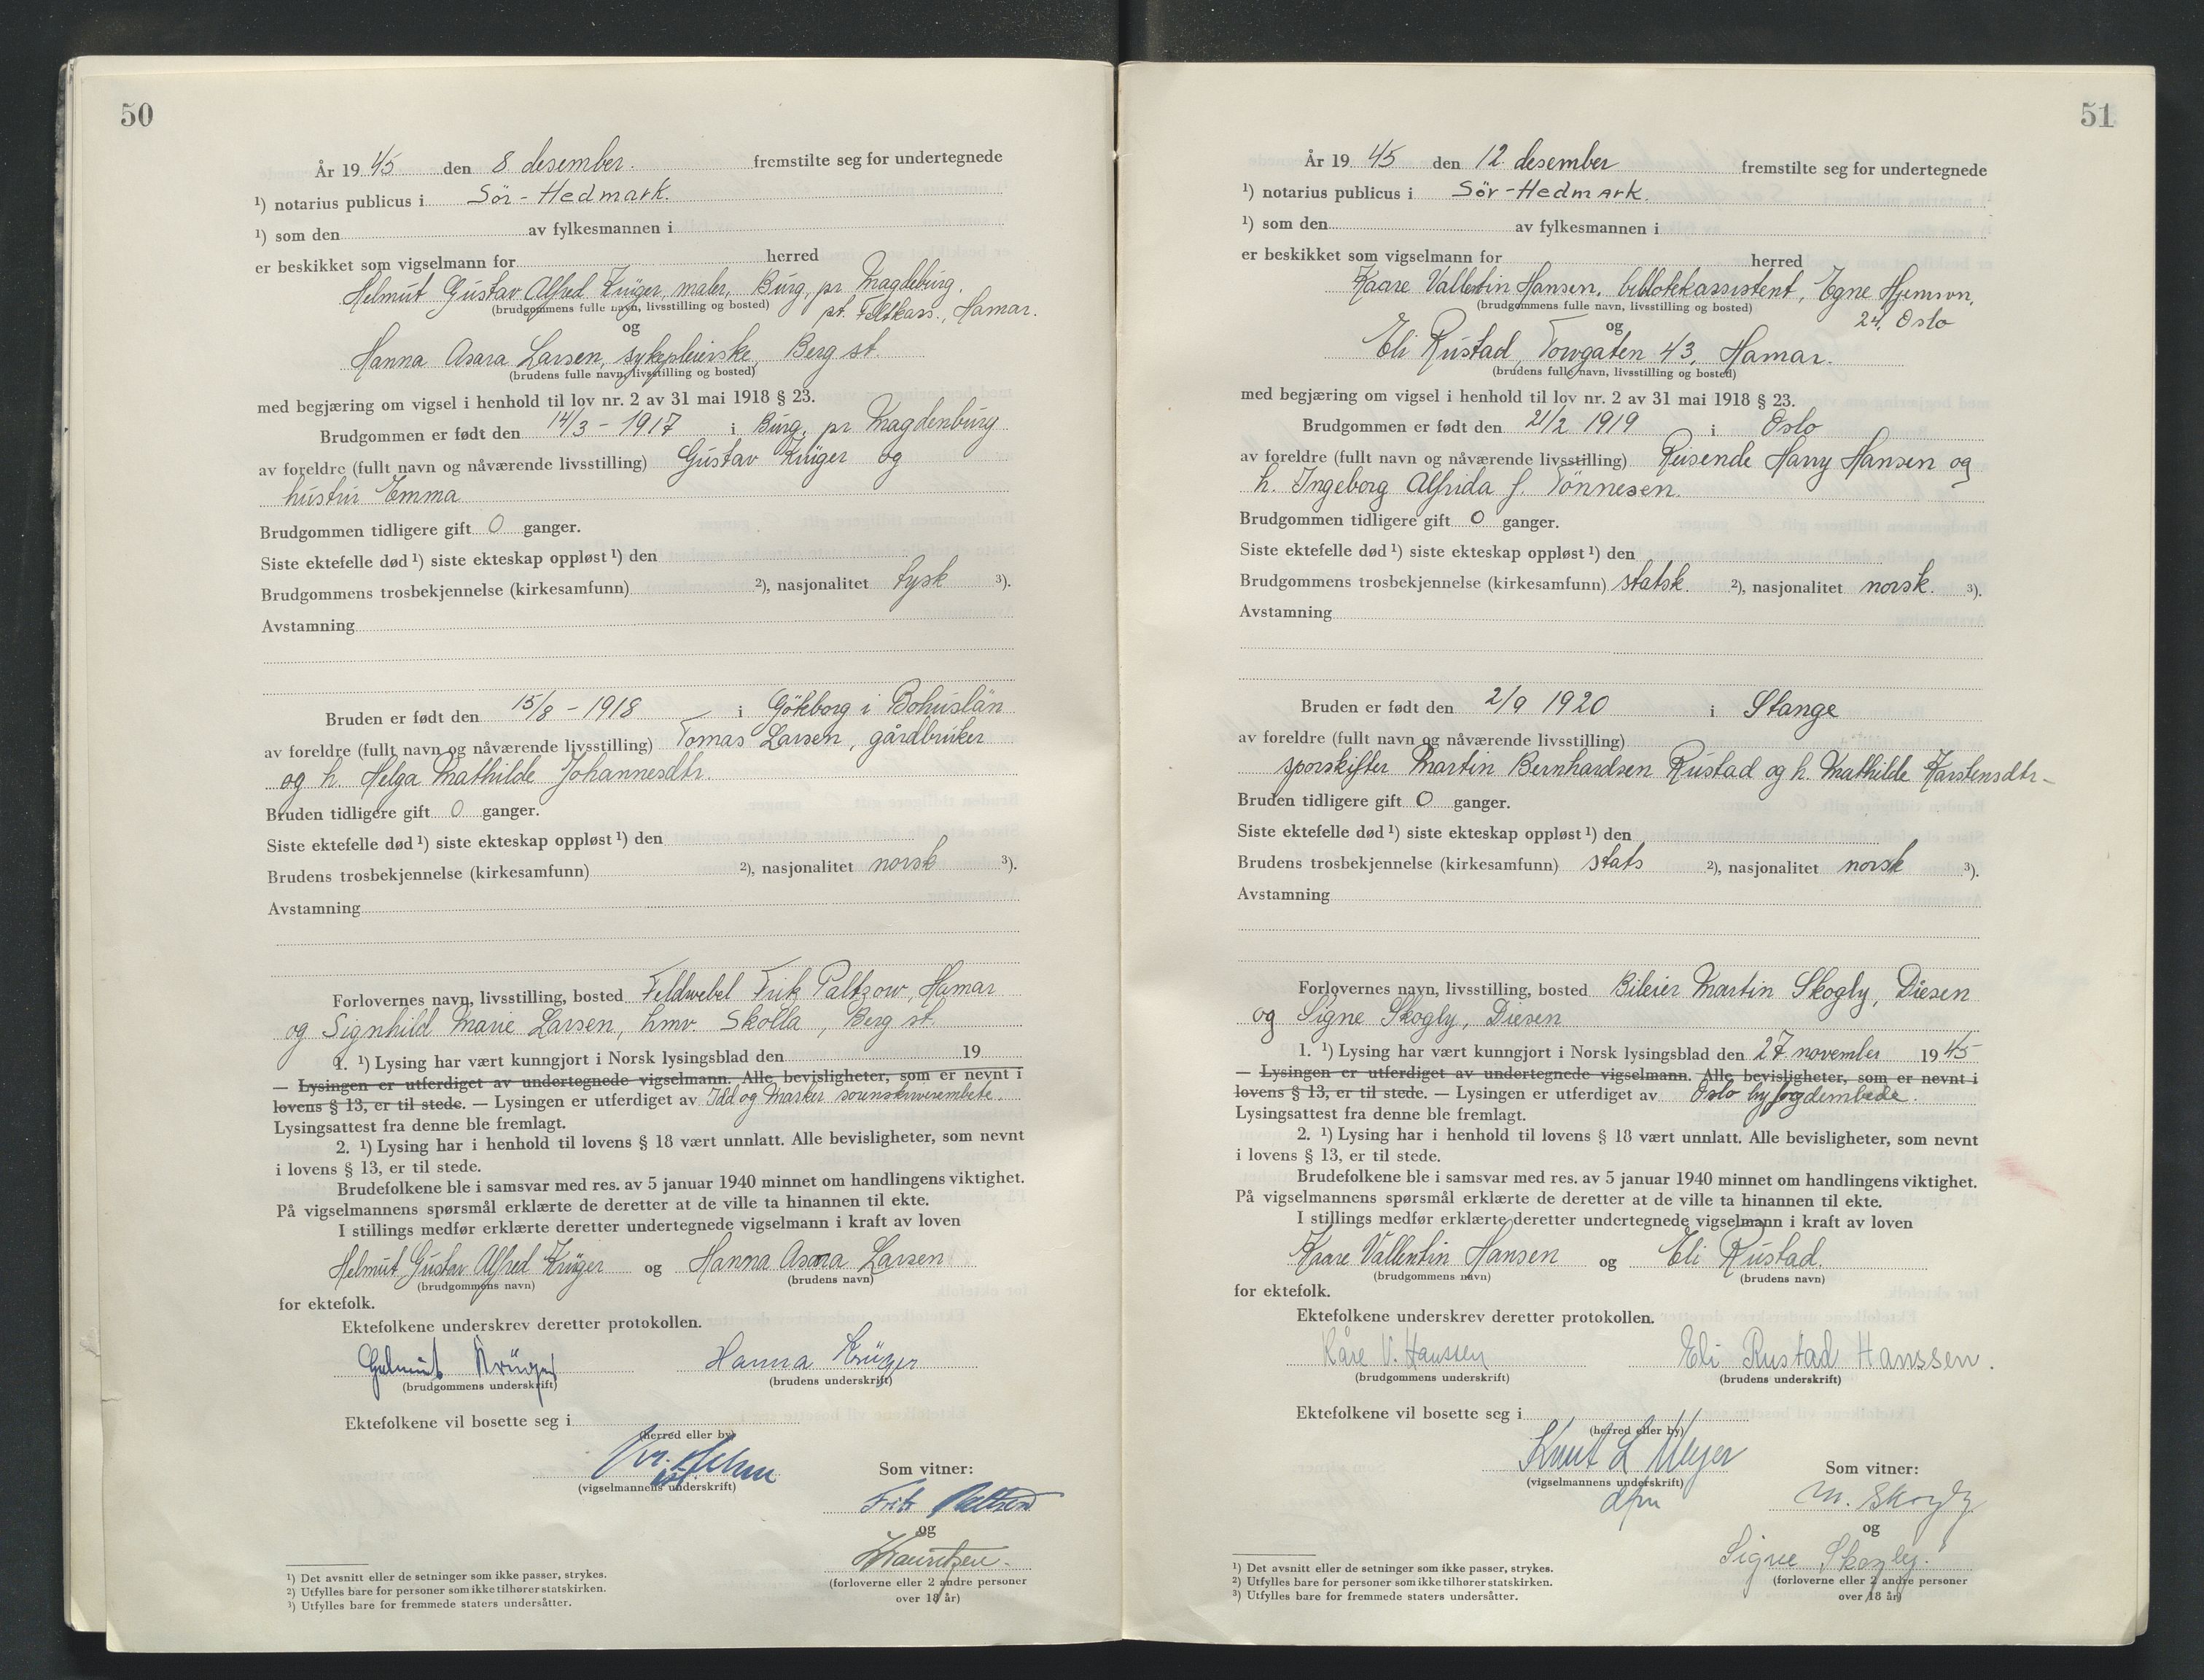 50
År 19 45 den 8. desember. fremstilte seg for undertegnede
¹) notarius publicus i Sör-Hedmark.
¹) som den av fylkesmannen i
er beskikket som vigselmann for herred
Helmut Gustav Alfred Krüger, maler, Burg, pr Magdeburg.
(brudgommens fulle navn, livsstilling og bosted) pt. Feltkass., Hamar.
og
Hanna Asara Larsen, sykepleierske, Berg st.
(brudens fulle navn, livsstilling og bosted)
med begjæring om vigsel i henhold til lov nr. 2 av 31 mai 1918 § 23.
Brudgommen er født den 14/3 - 1917 i Burg, pr Magdenburg
av foreldre (fullt navn og nåværende livsstilling) Gustav Krüger og
hustru Emma
Brudgommen tidligere gift 0 ganger.
Siste ektefelle død ¹) siste ekteskap oppløst ¹) den
Brudgommens trosbekjennelse (kirkesamfunn) ²), nasjonalitet tysk ³).
Avstamning
Bruden er født den 15/8 - 1918 i Göteborg i Bohuslän
av foreldre (fullt navn og nåværende livsstilling) Tomas Larsen, gårdbruker
og h. Helga Mathilde Johannesdtr.
Bruden tidligere gift 0 ganger.
Siste ektefelle død ¹) siste ekteskap oppløst ¹) den
Brudens trosbekjennelse (kirkesamfunn) ²), nasjonalitet norsk ³).
Avstamning
Forlovernes navn, livsstilling, bosted Feldwebel Frik Paltzow, Hamar
og Signhild Marie Larsen, hmv. Skolla, Berg st.
1. ¹) Lysing har vært kunngjort i Norsk lysingsblad den 19
— Lysingen er utferdiget av undertegnede vigselmann. Alle bevisligheter, som er nevnt i
lovens § 13, er til stede. — Lysingen er utferdiget av Idd og Marker sorenskriverembete.
Lysingsattest fra denne ble fremlagt.
2. ¹) Lysing har i henhold til lovens § 18 vært unnlatt. Alle bevisligheter, som nevnt
i lovens § 13, er til stede.
Brudefolkene ble i samsvar med res. av 5 januar 1940 minnet om handlingens viktighet.
På vigselmannens spørsmål erklærte de deretter at de ville ta hinannen til ekte.
I stillings medfør erklærte deretter undertegnede vigselmann i kraft av loven
Helmut Gustav Alfred Krüger og Hanna Asara Larsen
(brudgommens navn) (brudens navn)
for ektefolk.
Ektefolkene underskrev deretter protokollen.
Helmut Krüger Hanna Krüger
(brudgommens underskrift) (brudens underskrift)
Ektefolkene vil bosette seg i
(herred eller by)
(vigselmannens underskrift)
Som vitner:
Fritz Paltzow
og
Lauritzen
(forloverne eller 2 andre personer
over 18 år)
¹) Det avsnitt eller de setninger som ikke passer, strykes.
²) Utfylles bare for personer som ikke tilhører statskirken.
³) Utfylles bare for fremmede staters undersåtter.
51
År 19 45 den 12. desember fremstilte seg for undertegnede
¹) notarius publicus i Sör-Hedmark.
¹) som den av fylkesmannen i
er beskikket som vigselmann for herred
Kaare Vallentin Hansen, bibliotekassistent, Egne Hjemvn,
(brudgommens fulle navn, livsstilling og bosted) 24, Oslo
og
Eli Rustad, Torvgaten 43, Hamar.
(brudens fulle navn, livsstilling og bosted)
med begjæring om vigsel i henhold til lov nr. 2 av 31 mai 1918 § 23.
Brudgommen er født den 21/2 1919 i Oslo
av foreldre (fullt navn og nåværende livsstilling) Reisende Harry Hansen og
h. Ingeborg Alfrida f. Tönnesen.
Brudgommen tidligere gift 0 ganger.
Siste ektefelle død ¹) siste ekteskap oppløst ¹) den
Brudgommens trosbekjennelse (kirkesamfunn) statsk. ²), nasjonalitet norsk. ³).
Avstamning
Bruden er født den 2/9 1920 i Stange
av foreldre (fullt navn og nåværende livsstilling)
sporskifter Martin Bernhardsen Rustad og h. Mathilde Karstensdtr-
Bruden tidligere gift 0 ganger.
Siste ektefelle død ¹) siste ekteskap oppløst ¹) den
Brudens trosbekjennelse (kirkesamfunn) stats ²), nasjonalitet norsk ³).
Avstamning
Forlovernes navn, livsstilling, bosted Bileier Martin Skogly, Diesen
og Signe Skogly, Diesen
1. ¹) Lysing har vært kunngjort i Norsk lysingsblad den 27 november 19 45
— Lysingen er utferdiget av undertegnede vigselmann. Alle bevisligheter, som er nevnt i
lovens § 13, er til stede. — Lysingen er utferdiget av Oslo byfogdembede.
Lysingsattest fra denne ble fremlagt.
2. ¹) Lysing har i henhold til lovens § 18 vært unnlatt. Alle bevisligheter, som nevnt
i lovens § 13, er til stede.
Brudefolkene ble i samsvar med res. av 5 januar 1940 minnet om handlingens viktighet.
På vigselmannens spørsmål erklærte de deretter at de ville ta hinannen til ekte.
I stillings medfør erklærte deretter undertegnede vigselmann i kraft av loven
Kaare Vallentin Hansen og Eli Rustad.
(brudgommens navn) (brudens navn)
for ektefolk.
Ektefolkene underskrev deretter protokollen.
Kåre V. Hanssen Eli Rustad Hanssen.
(brudgommens underskrift) (brudens underskrift)
Ektefolkene vil bosette seg i
(herred eller by)
Knut L Meyer
(vigselmannens underskrift)
dfm
Som vitner:
M. Skogly
og
Signe Skogly.
(forloverne eller 2 andre personer
over 18 år)
¹) Det avsnitt eller de setninger som ikke passer, strykes.
²) Utfylles bare for personer som ikke tilhører statskirken.
³) Utfylles bare for fremmede staters undersåtter.